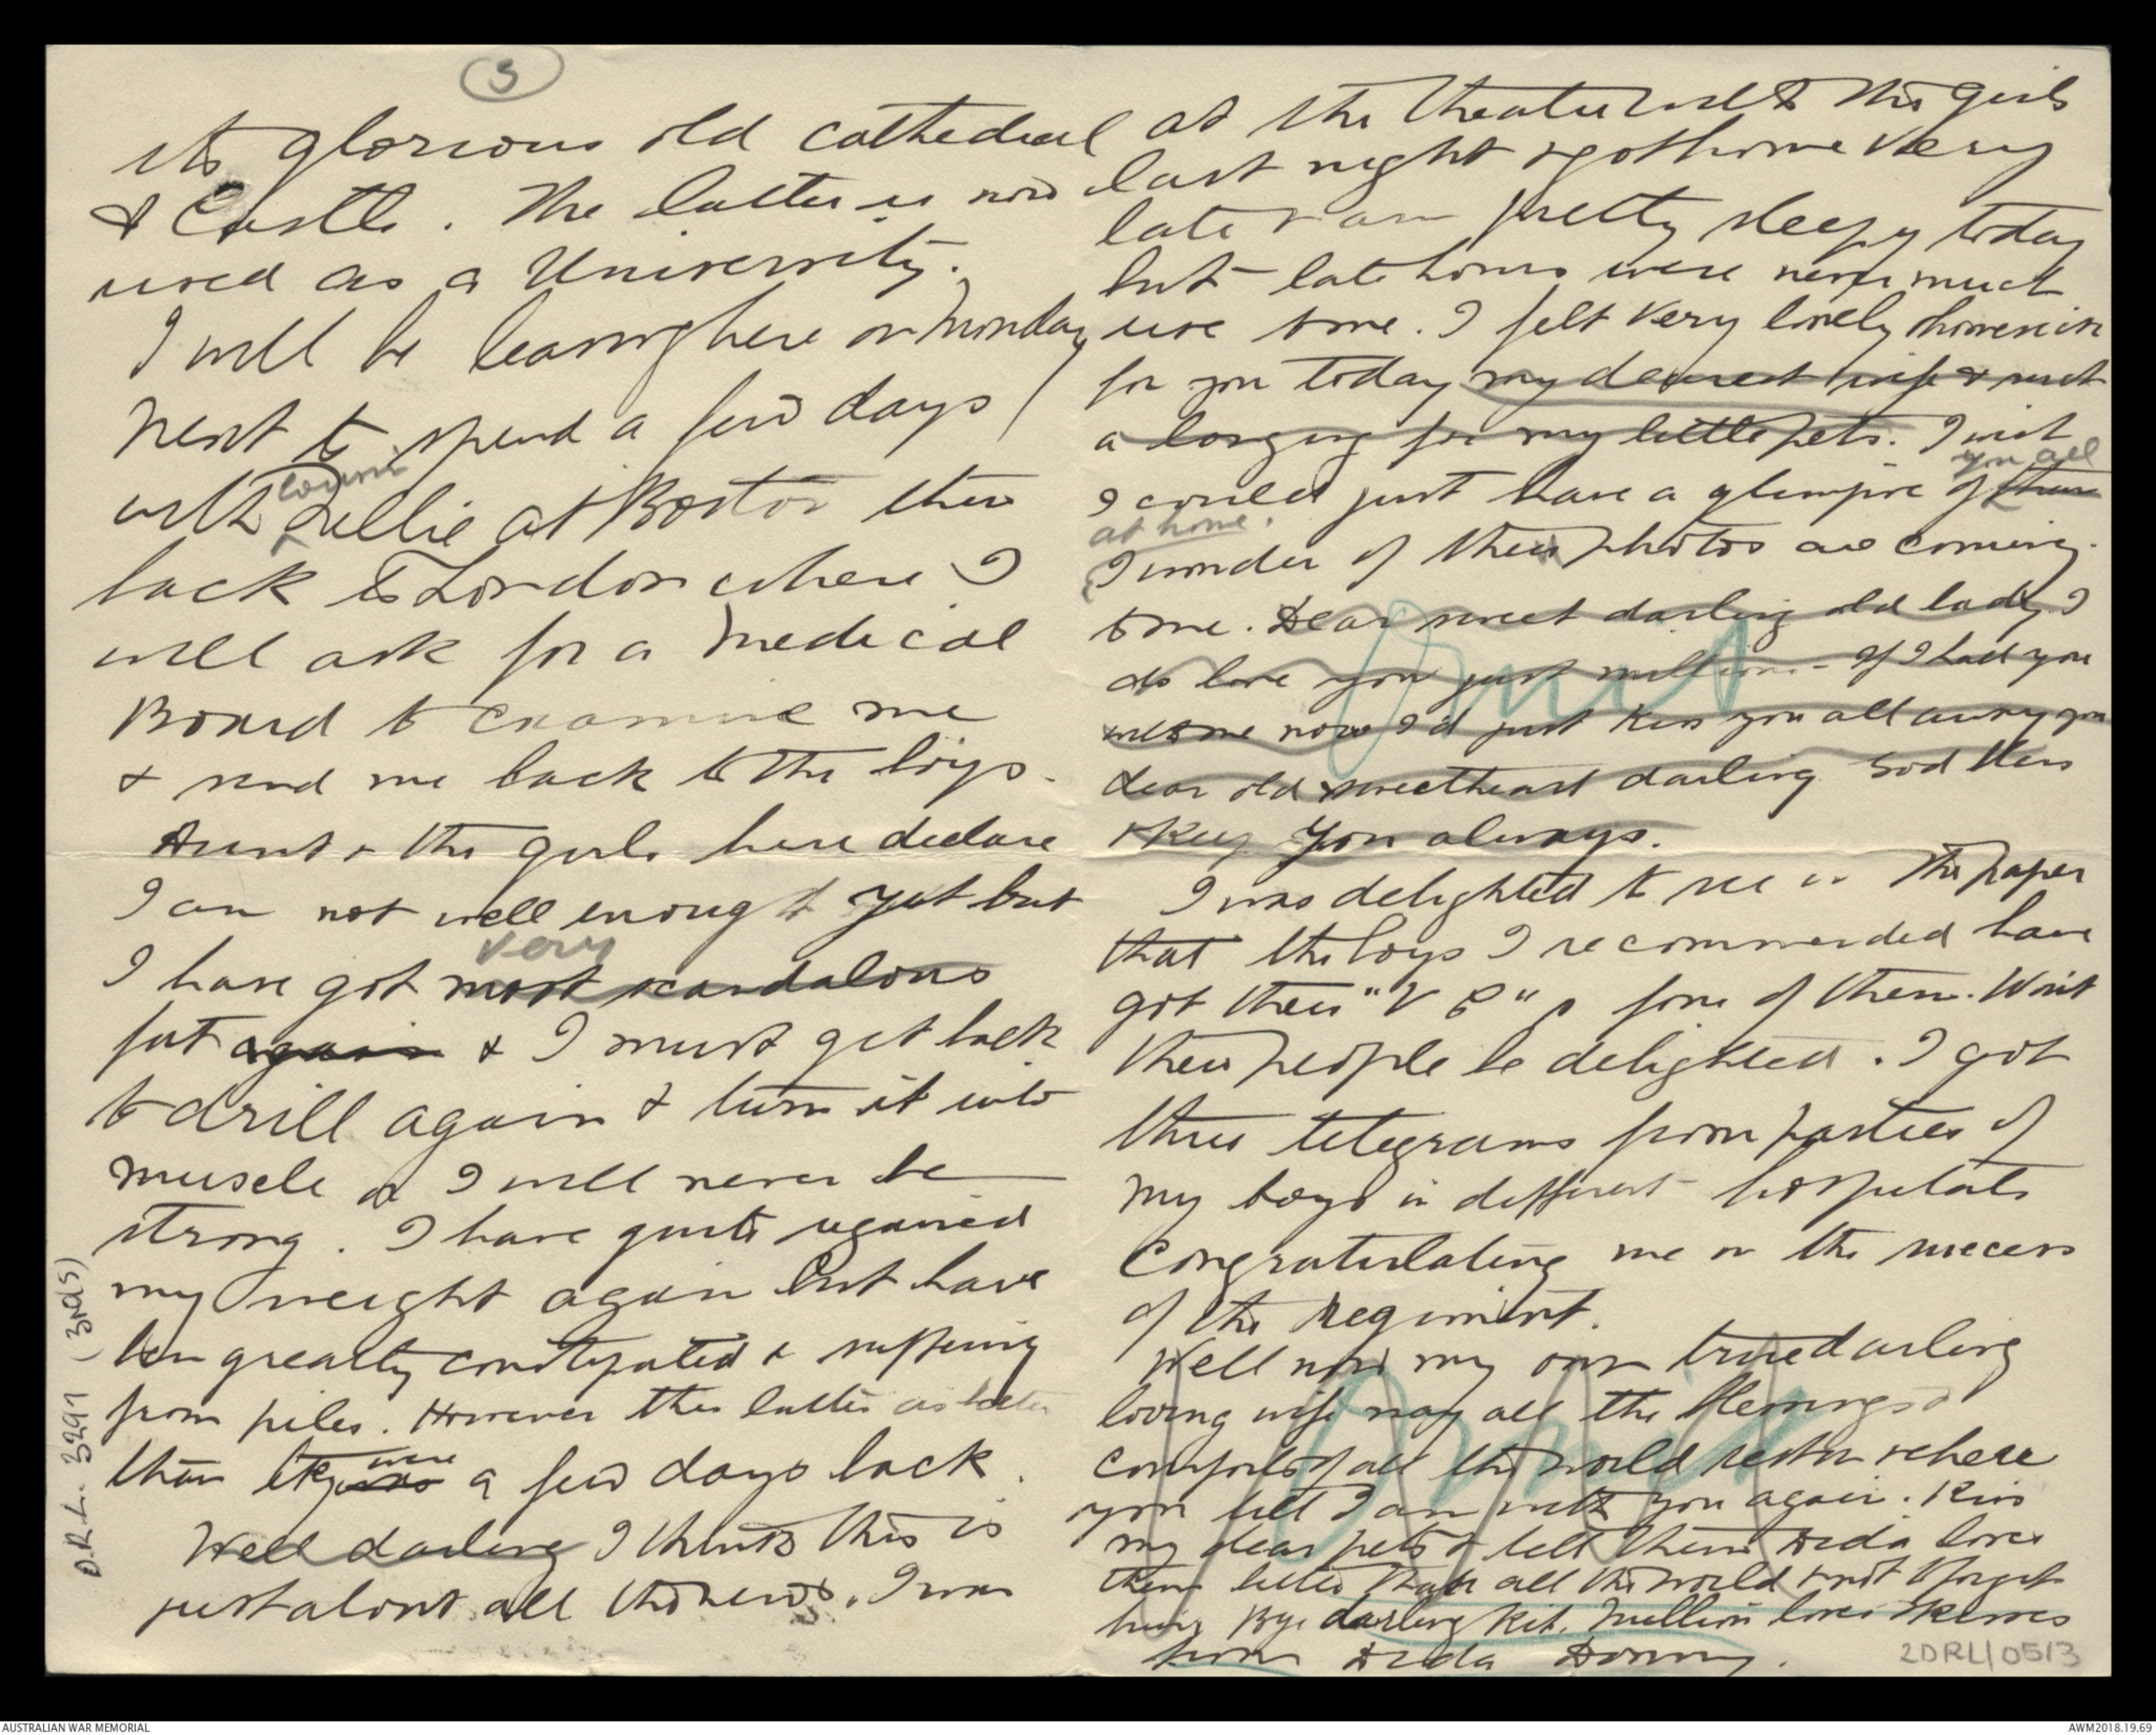 3
its glorious old cathedral
& Castle. The latter is now
used as a University.
I will be leaving here on Monday
next to spend a few days
with cousin Dellie at Boston then
back to London where I
will ask for a Medical
Board to examine me
& send me back to the boys.
Aunt & the girls here declare
I am not well enough yet but
very
I have got most scandalous
fat again & I must get back
to drill again & turn it into
muscle or I will never be
strong. I have quite regained
my weight again but have
been greatly constipated & suffering
from piles. However the latter is better
than they were was a few days back.
Well darling I think this is
just about all the news. I was
D.R.L. 3291 (3rd S)
at the theatre with the girls
last night & got home very
late & am pretty sleepy today
but late hours were never much
use to me. I felt very lonely & homesick
for you today my dearest wife & such
a longing for my little pets. I wish
you all
I could just have a glimpse of them
at home.
I wonder if their photos are coming
to me. Dear sweet darling old lady I
do love you just millions - If I had you
with me now I'd just kiss you all away you
dear old sweetheart darling God bless
& keep you always.
I was delighted to see in the paper
that the boys I recommended have
got their "V C" s four of them. Won't
their people be delighted. I got
three telegrams from parties of
my boys in different hospitals
congratulating me on the success
of the Regiment.
Well now my own true darling
loving wife may all the blessings &
comforts of all the world rest on & cheer
you till I am with you again. Kiss
my dear pets & tell them Dida loves
them better than all the world & not to forget
him. Bye darling Kit. Million loves & kisses
from Dida
Omit
Omit
2DRL/0513
AUSTRALIAN WAR MEMORIAL
AWM2018.19.69